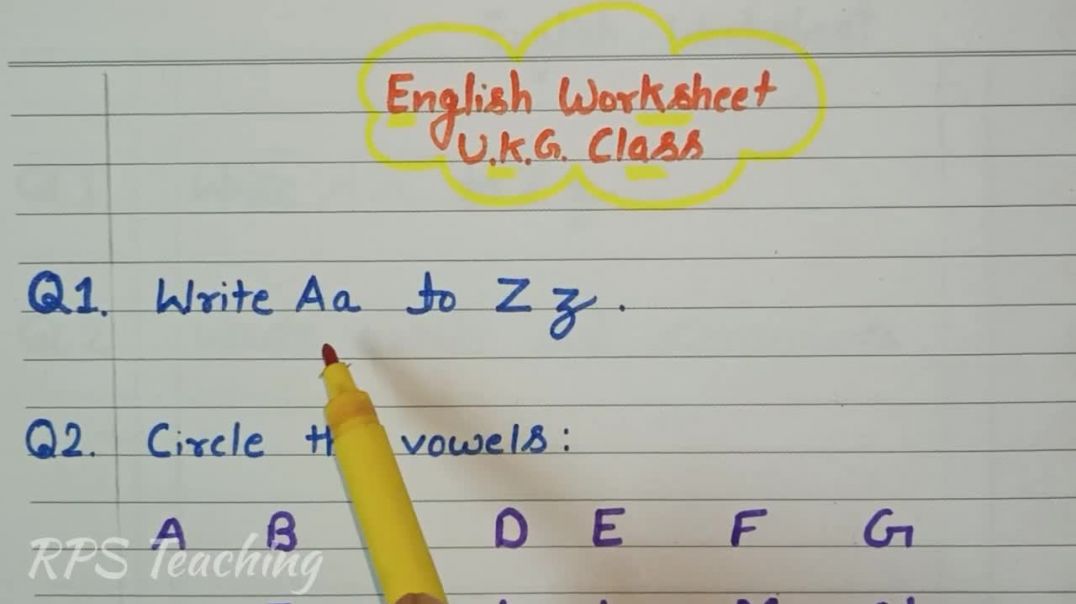 English Worksheet
U.K.G. Class
Q1. Write Aa to Zz.
Q2. Circle vowels:
A B D E F G
RPS Teaching